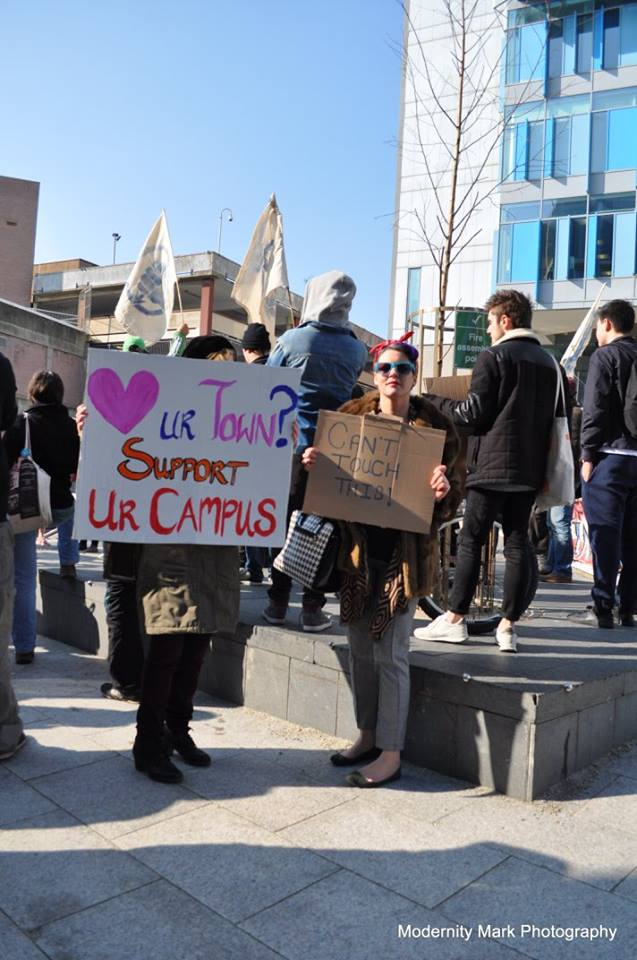 UR TOWN?
SUPPORT
UR CAMPUS
CAN'T
TOUCH
THIS!
Fire
assembly
point
Modernity Mark Photography